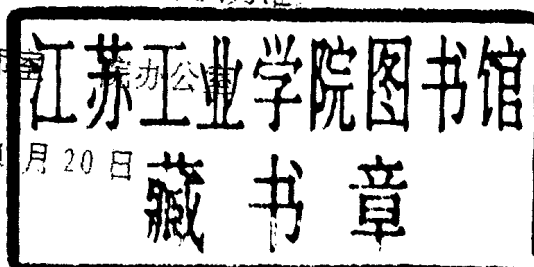 江苏工业学院图书馆
藏书章
办公室
月20日